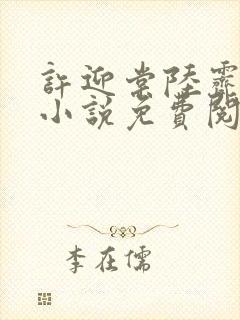 許迎常陸霽
小說免費閱
李在儒